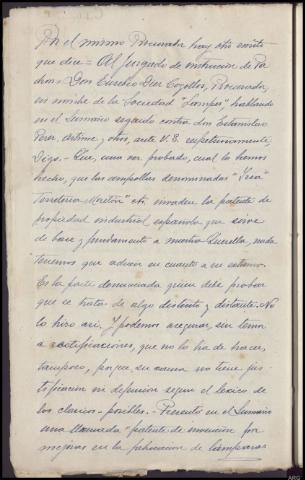 Por el mismo Procurador hay otro escrito
que dice = Al Juzgado de instrucción de Pa
Don Eusebio Diez Cogollos, Procurador,
en nombre de la Sociedad "Lampes" hablando
en el Sumario seguido contra Don Estanislao
Pera, y otros, ante V.S. respetuosamente
digo. = Que, una vez probado, cual lo hemos
hecho, que las ampollas denominadas "Yera"
"Metón" etc. invaden la patente de
propiedad industrial española que sirve
de base y fundamento a nuestra Querella, nada
tenemos que aducir en cuanto a ese extremo.
Es la parte denunciada quien debe probar
que se trata de algo distinto y distante. No
lo hizo así. Y podemos asegurar, sin temor
a rectificaciones, que no lo ha de hacer,
tampoco, porque su causa no tiene jus
tificación ni defensa segun el léxico de
los clásicos - posibles. - Presentó en el Sumario
una llamada "patente de invención por
mejoras en la fabricación de lámparas